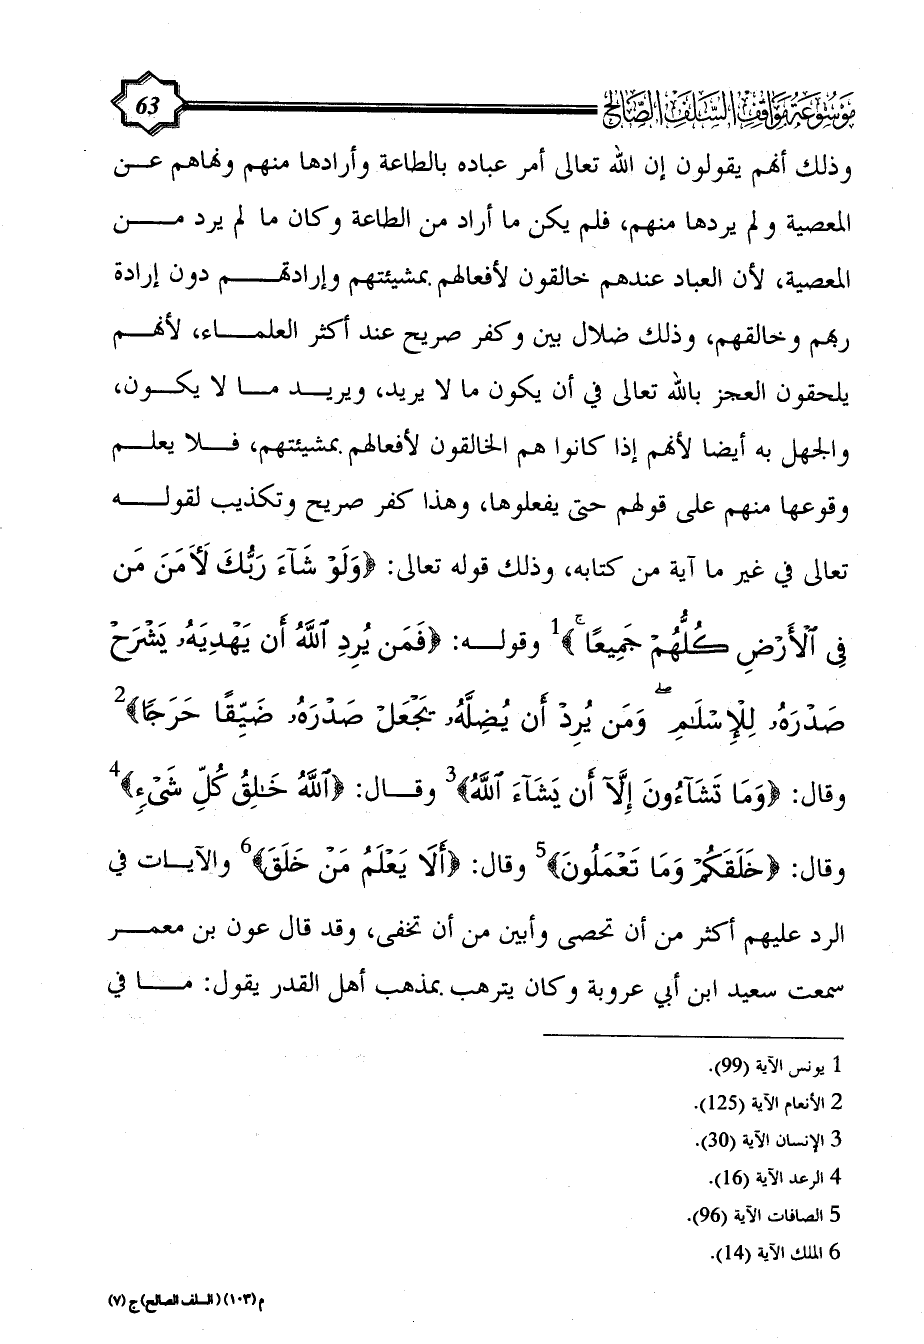 موسوعة مواقف السلف الصالح
63
وذلك أنهم يقولون إن الله تعالى أمر عباده بالطاعة وأرادها منهم ونهاهم عن
المعصية ولم يردها منهم، فلم يكن ما أراد من الطاعة وكان ما لم يرد من
المعصية، لأن العباد عندهم خالقون لأفعالهم بمشيئتهم وإرادتهم دون إرادة
ربهم وخالقهم، وذلك ضلال بين وكفر صريح عند أكثر العلماء، لأنهم
يلحقون العجز بالله تعالى في أن يكون ما لا يريد، ويريد ما لا يكون،
والجهل به أيضا لأنهم إذا كانوا هم الخالقون لأفعالهم بمشيئتهم، فلا يعلم
وقوعها منهم على قولهم حتى يفعلوها، وهذا كفر صريح وتكذيب لقوله
تعالى في غير ما آية من كتابه، وذلك قوله تعالى: ﴿وَلَوْ شَآءَ رَبُّكَ لَأَمَنَ مَن
فِى ٱلْأَرْضِ كُلُّهُمْ جَمِيعًا ۚ﴾1 وقوله: ﴿فَمَن يُرِدِ ٱللَّهُ أَن يَهْدِيَهُۥ يَشْرَحْ
صَدْرَهُۥ لِلْإِسْلَٰمِ ۖ وَمَن يُرِدْ أَن يُضِلَّهُۥ يَجْعَلْ صَدْرَهُۥ ضَيِّقًا حَرَجًا﴾2
وقال: ﴿وَمَا تَشَآءُونَ إِلَّآ أَن يَشَآءَ ٱللَّهُ﴾3 وقال: ﴿ٱللَّهُ خَٰلِقُ كُلِّ شَىْءٍ﴾4
وقال: ﴿خَلَقَكُمْ وَمَا تَعْمَلُونَ﴾5 وقال: ﴿أَلَا يَعْلَمُ مَنْ خَلَقَ﴾6 والآيات في
الرد عليهم أكثر من أن تحصى وأبين من أن تخفى، وقد قال عون بن معمر
سمعت سعيد ابن أبي عروبة وكان يترهب بمذهب أهل القدر يقول: ما في
1 يونس الآية (99).
2 الأنعام الآية (125).
3 الإنسان الآية (30).
4 الرعد الآية (16).
5 الصافات الآية (96).
6 الملك الآية (14).
م (١٠٣) (السلف الصالح) ج (٧)